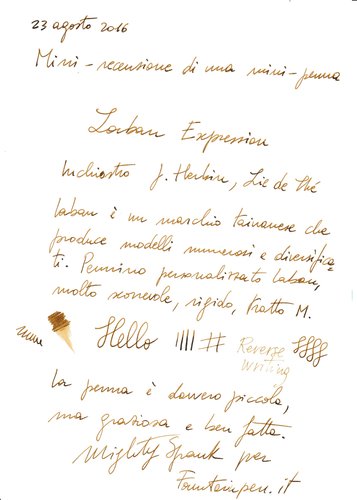 23 agosto 2016
Mini-recensione di una mini-penna
Laban Expression
Inchiostro J. Herbin, Lie de Thé
Laban è un marchio taiwanese che
produce modelli numerosi e diversifica-
ti. Pennino personalizzato Laban,
molto scorrevole, rigido, tratto M.
Hello |||| # Reverse
writing
La penna è davvero piccola,
ma graziosa e ben fatta.
Mighty Spank per
Fountainpen.it